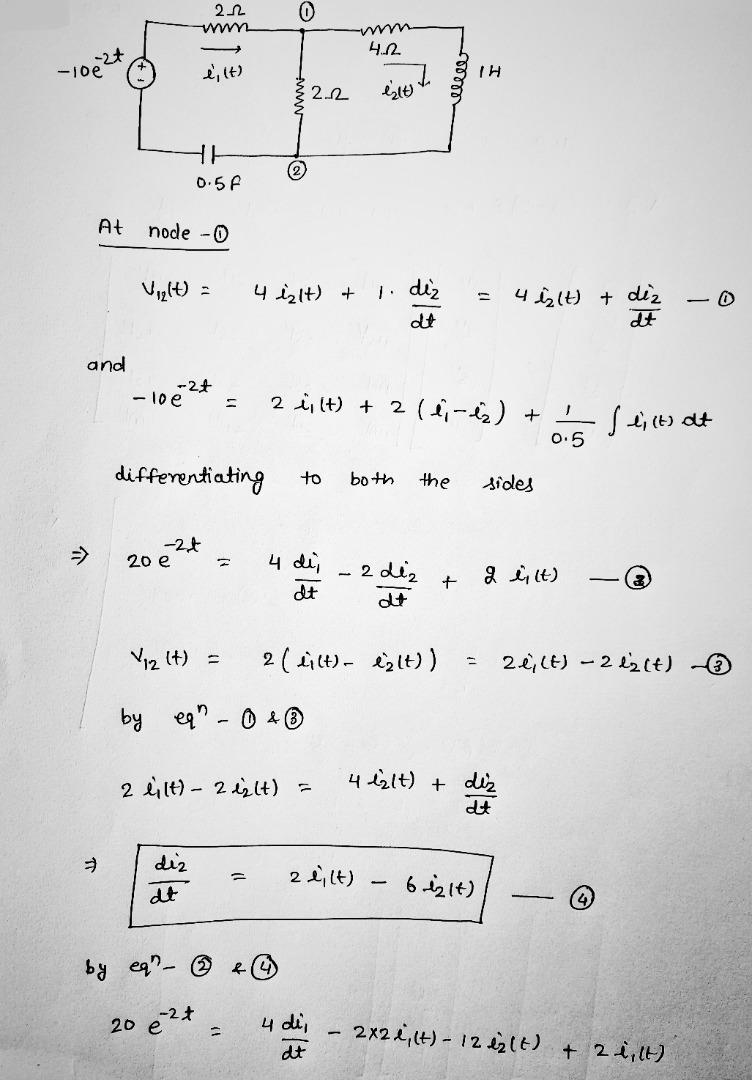 2Ω ①
4Ω
-10e^-2t + - i₁(t) 2Ω i₂(t) 1H
0.5f ②
At node -①
V₁₂(t) = 4 i₂(t) + 1. di₂/dt = 4 i₂(t) + di₂/dt — ①
and
-10e^-2t = 2 i₁(t) + 2 (i₁-i₂) + 1/0.5 ∫ i₁(t) dt
differentiating to both the sides
⇒ 20 e^-2t = 4 di₁/dt - 2 di₂/dt + 2 i₁(t) — ②
V₁₂(t) = 2(i₁(t) - i₂(t)) = 2i₁(t) - 2i₂(t) — ③
by eqⁿ - ① & ③
2 i₁(t) - 2 i₂(t) = 4 i₂(t) + di₂/dt
⇒ di₂/dt = 2 i₁(t) - 6 i₂(t) — ④
by eqⁿ- ② & ④
20 e^-2t = 4 di₁/dt - 2×2 i₁(t) - 12 i₂(t) + 2 i₁(t)